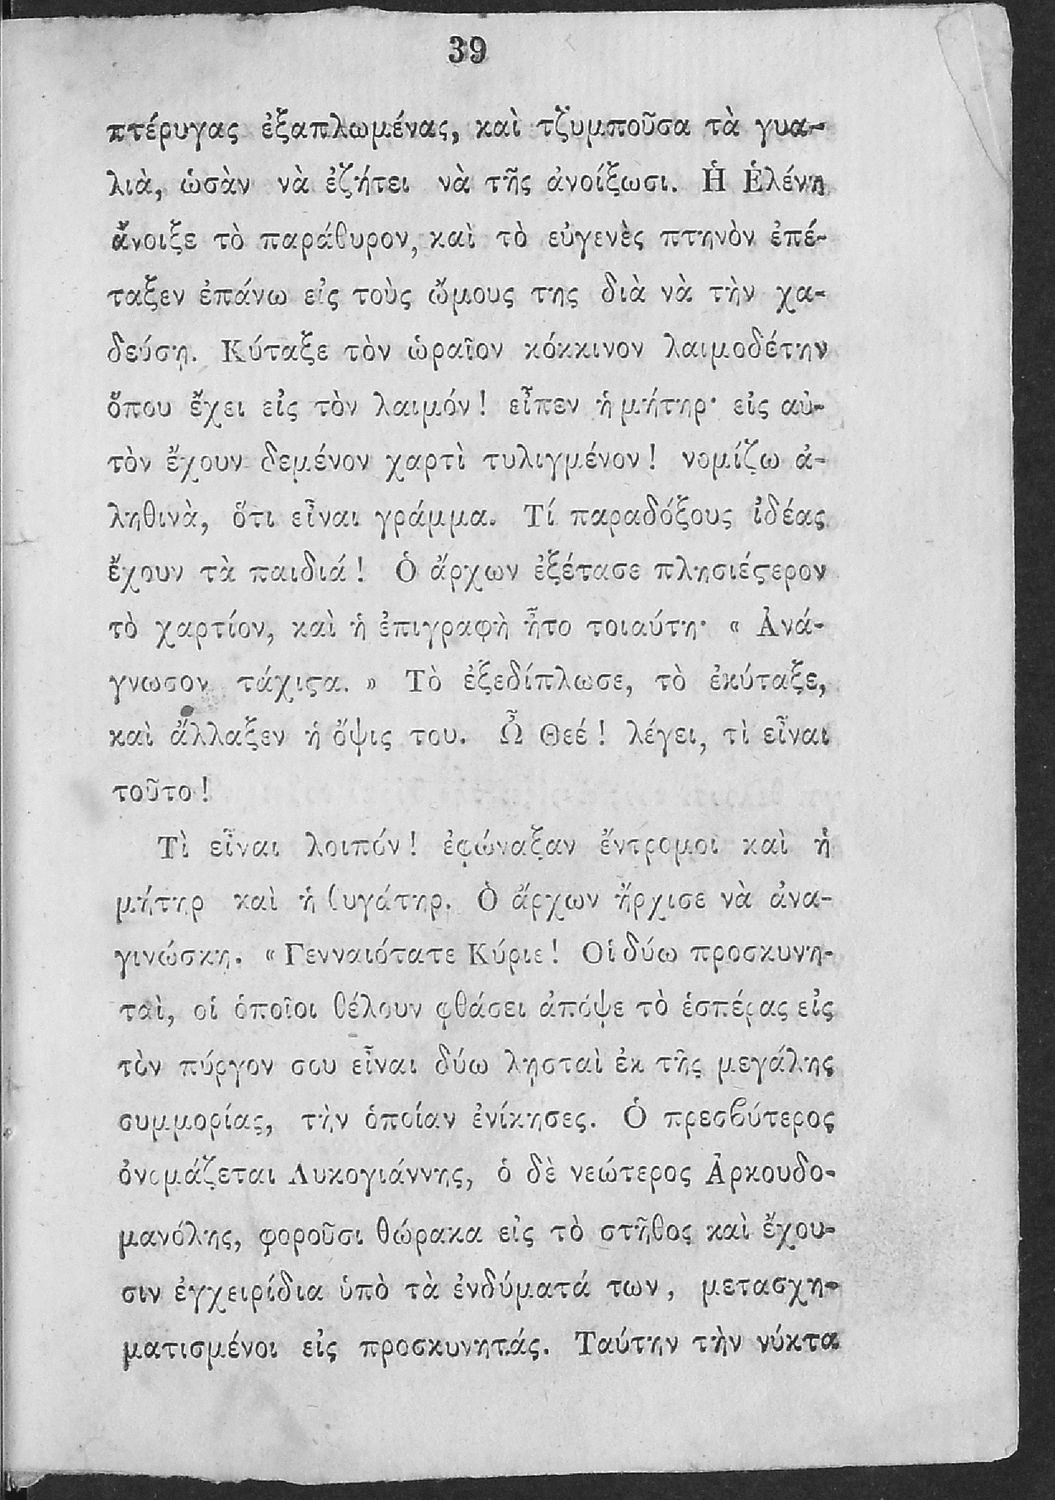 39
πτέρυγας ἐξαπλωμένας, καὶ τζυμποῦσα τὰ γυα-
λιὰ, ὡσὰν νὰ ἐζήτει νὰ τῆς ἀνοίξωσι. Ἡ Ἑλένη
ἄνοιξε τὸ παράθυρον, καὶ τὸ εὐγενὲς πτηνὸν ἐπέ-
ταξεν ἐπάνω εἰς τοὺς ὤμους της διὰ νὰ τὴν χα-
δεύσῃ. Κύταξε τὸν ὡραῖον κόκκινον λαιμοδέτην
ὅπου ἔχει εἰς τὸν λαιμόν! εἶπεν ἡ μήτηρ· εἰς αὐ-
τὸν ἔχουν δεμένον χαρτὶ τυλιγμένον! νομίζω ἀ-
ληθινὰ, ὅτι εἶναι γράμμα. Τί παραδόξους ἰδέας
ἔχουν τὰ παιδιά! Ὁ ἄρχων ἐξέτασε πλησιέϛερον
τὸ χαρτίον, καὶ ἡ ἐπιγραφὴ ἦτο τοιαύτη· « Ἀνά-
γνωσον τάχιϛα. » Τὸ ἐξεδίπλωσε, τὸ ἐκύταξε,
καὶ ἄλλαξεν ἡ ὄψις του. Ὦ Θεέ! λέγει, τὶ εἶναι
τοῦτο!
Τὶ εἶναι λοιπόν! ἐφώναξαν ἔντρομοι καὶ ἡ
μήτηρ καὶ ἡ θυγάτηρ. Ὁ ἄρχων ἤρχισε νὰ ἀνα-
γινώσκῃ. « Γενναιότατε Κύριε! Οἱ δύω προσκυνη-
ταὶ, οἱ ὁποῖοι θέλουν φθάσει ἀπόψε τὸ ἑσπέρας εἰς
τὸν πύργον σου εἶναι δύω λῃσταὶ ἐκ τῆς μεγάλης
συμμορίας, τὴν ὁποίαν ἐνίκησες. Ὁ πρεσβύτερος
ὀνομάζεται Λυκογιάννης, ὁ δὲ νεώτερος Ἀρκουδο-
μανόλης, φοροῦσι θώρακα εἰς τὸ στῆθος καὶ ἔχου-
σιν ἐγχειρίδια ὑπὸ τὰ ἐνδύματά των, μετασχη-
ματισμένοι εἰς προσκυνητάς. Ταύτην τὴν νύκτα